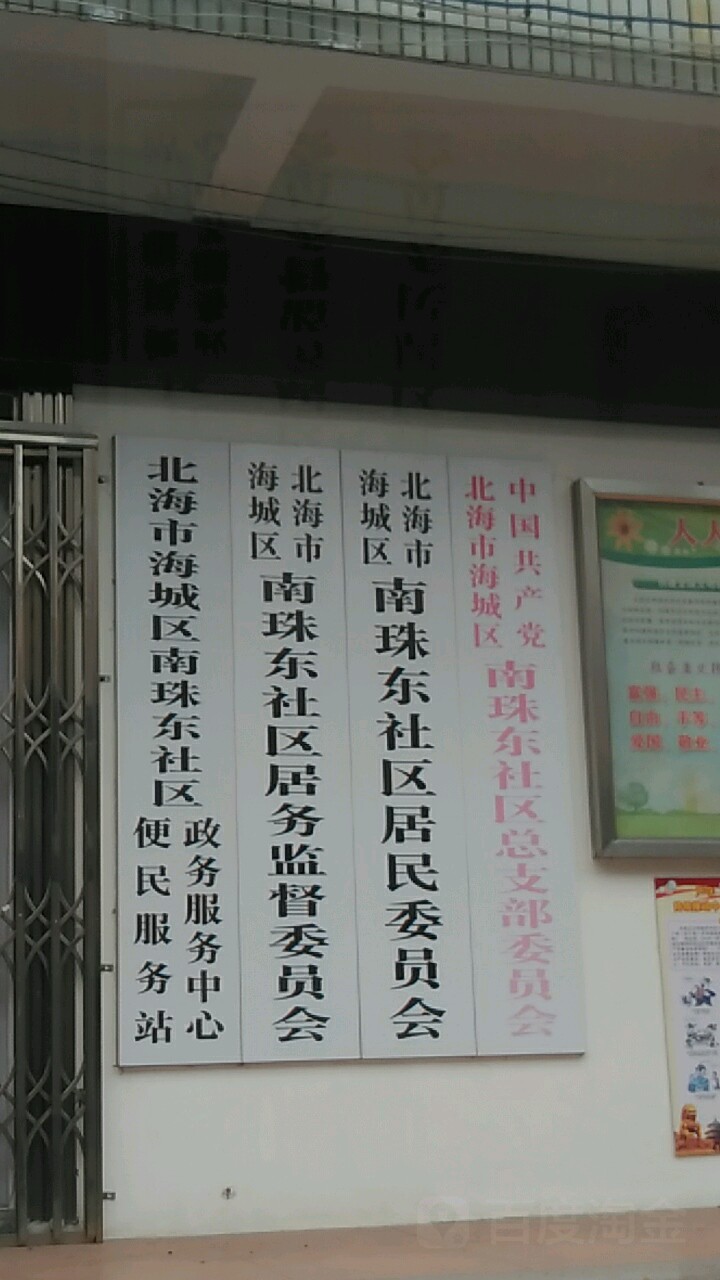 中国共产党
北海市海城区
南珠东社区总支部委员会
北海市
海城区
南珠东社区居民委员会
北海市
海城区
南珠东社区居务监督委员会
北海市海城区南珠东社区
政务服务中心
便民服务站
富强 民主
自由 平等
爱国 敬业
百度淘金